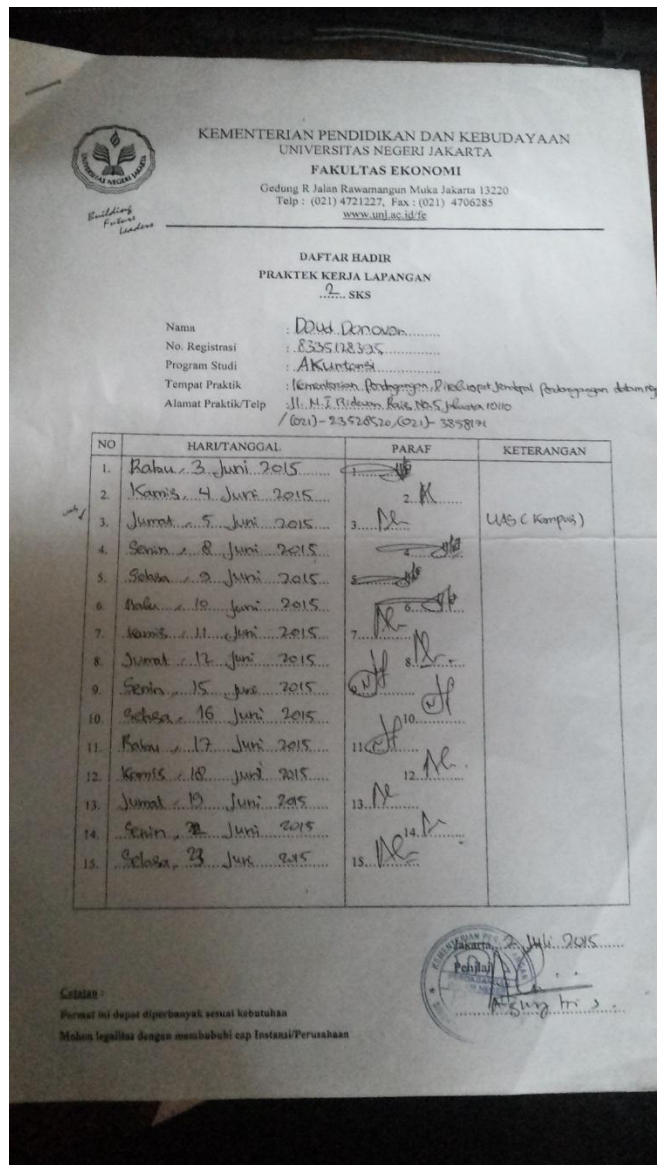 KEMENTERIAN PENDIDIKAN DAN KEBUDAYAAN
UNIVERSITAS NEGERI JAKARTA
FAKULTAS EKONOMI
Gedung R Jalan Rawamangun Muka Jakarta 13220
Telp : (021) 4721227, Fax : (021) 4706285
www.unj.ac.id/fe
UNIVERSITAS NEGERI JAKARTA
Building
Future
Leaders
DAFTAR HADIR
PRAKTEK KERJA LAPANGAN
2 SKS
Nama : Doud Donovan
No. Registrasi : 8335128395
Program Studi : Akuntansi
Tempat Praktik : Kementerian Perdagangan, Jendral Perdagangan dalam
Alamat Praktik/Telp : Jl. M.I Ridwan Rais No.5 Jakarta 10110
/ (021)-23528520, (021)- 3858171
NO HARI/TANGGAL PARAF KETERANGAN
1. Rabu, 3 Juni 2015 1.
2. Kamis, 4 Juni 2015 2.
3. Jumat, 5 Juni 2015 3. UAS (Kampus)
4. Senin, 8 Juni 2015 4.
5. Selasa, 9 Juni 2015 5.
6. Rabu, 10 Juni 2015 6.
7. Kamis, 11 Juni 2015 7.
8. Jumat, 12 Juni 2015 8.
9. Senin, 15 Juni 2015 9.
10. Selasa, 16 Juni 2015 10.
11. Rabu, 17 Juni 2015 11.
12. Kamis, 18 Juni 2015 12.
13. Jumat, 19 Juni 2015 13.
14. Senin, 22 Juni 2015 14.
15. Selasa, 23 Juni 2015 15.
Jakarta, 2 Juli 2015
Penilai
Agung Tri S.
Catatan :
Format ini dapat diperbanyak sesuai kebutuhan
Mohon legalitas dengan membubuhi cap Instansi/Perusahaan